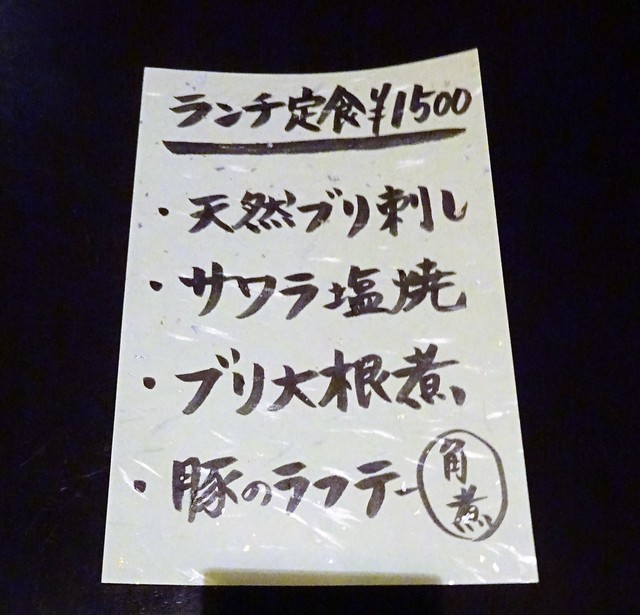 ランチ定食¥1500
・天然ブリ刺し
・サワラ塩焼
・ブリ大根煮
・豚のラフテー 角煮